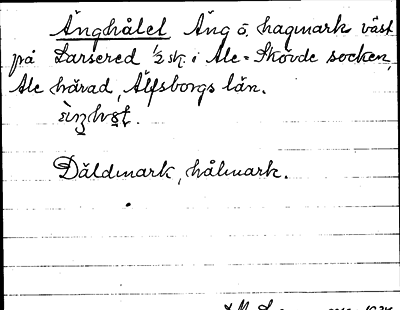 Änghålet Äng o. hagmark väst
på Larsered 1/2 sk. i Ale-Skövde socken,
Ale härad, Älfsborgs län.
Däldmark, hålmark.